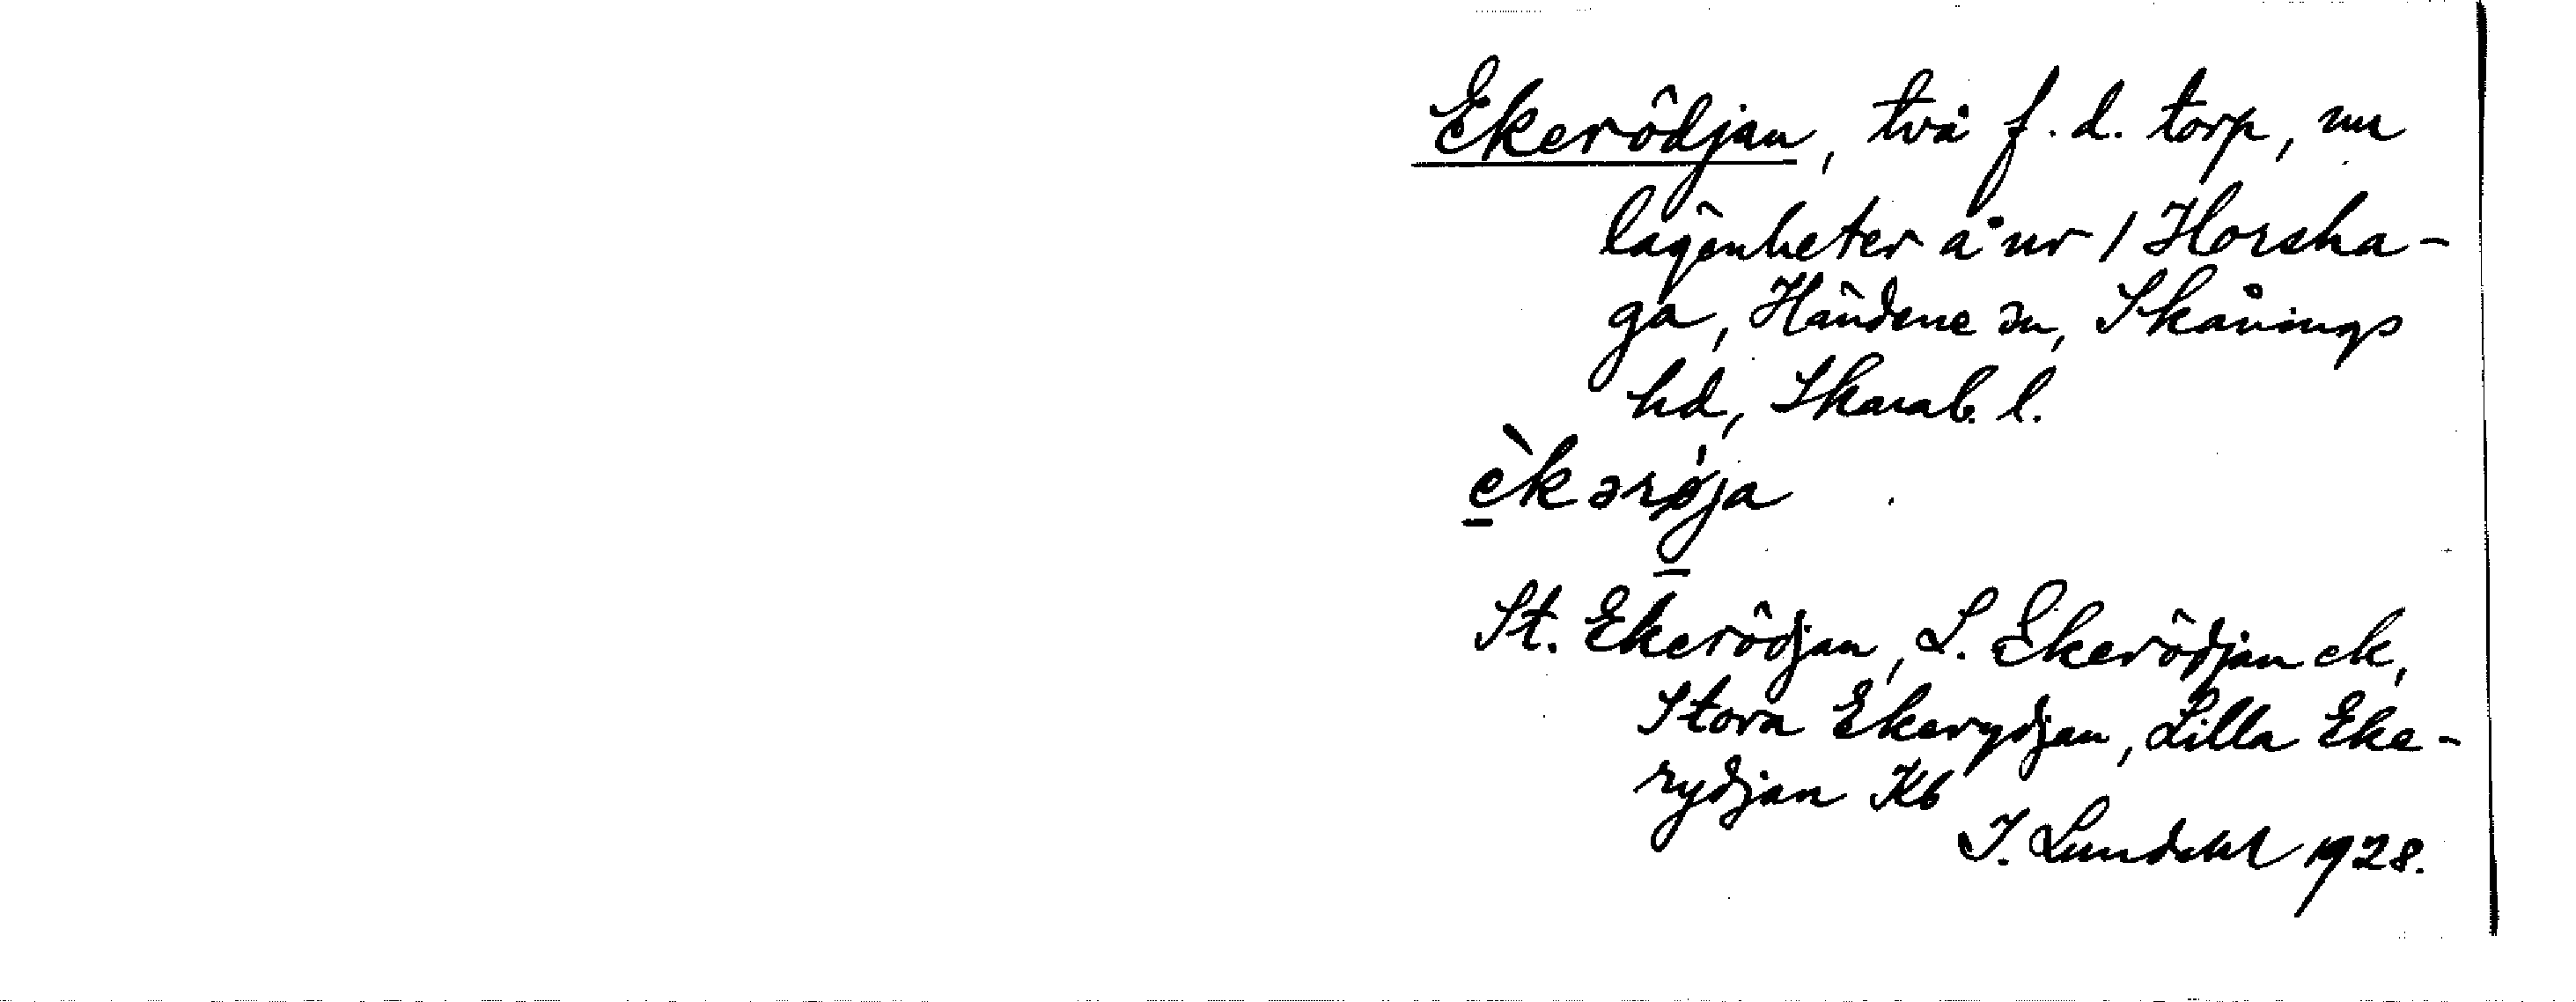 Ekerödjan, två f.d. torp, nu
lägenheter å nr 1 Horsha-
ga, Händene sn, Skånings
hd, Skarab. l.
èkərøja
St. Ekerödjan, L. Ekerödjan ek,
Stora Ekerydjan, Lilla Eke-
rydjan Kb
I. Lundahl 1928.